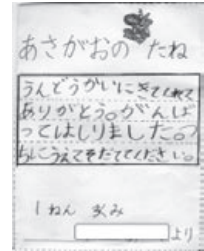 あさがおの たね
うんどうかいにきてくれて
ありがとう。がんば
ってはしりました。つ
ちにうえてそだててください。
1ねん 文くみ
より